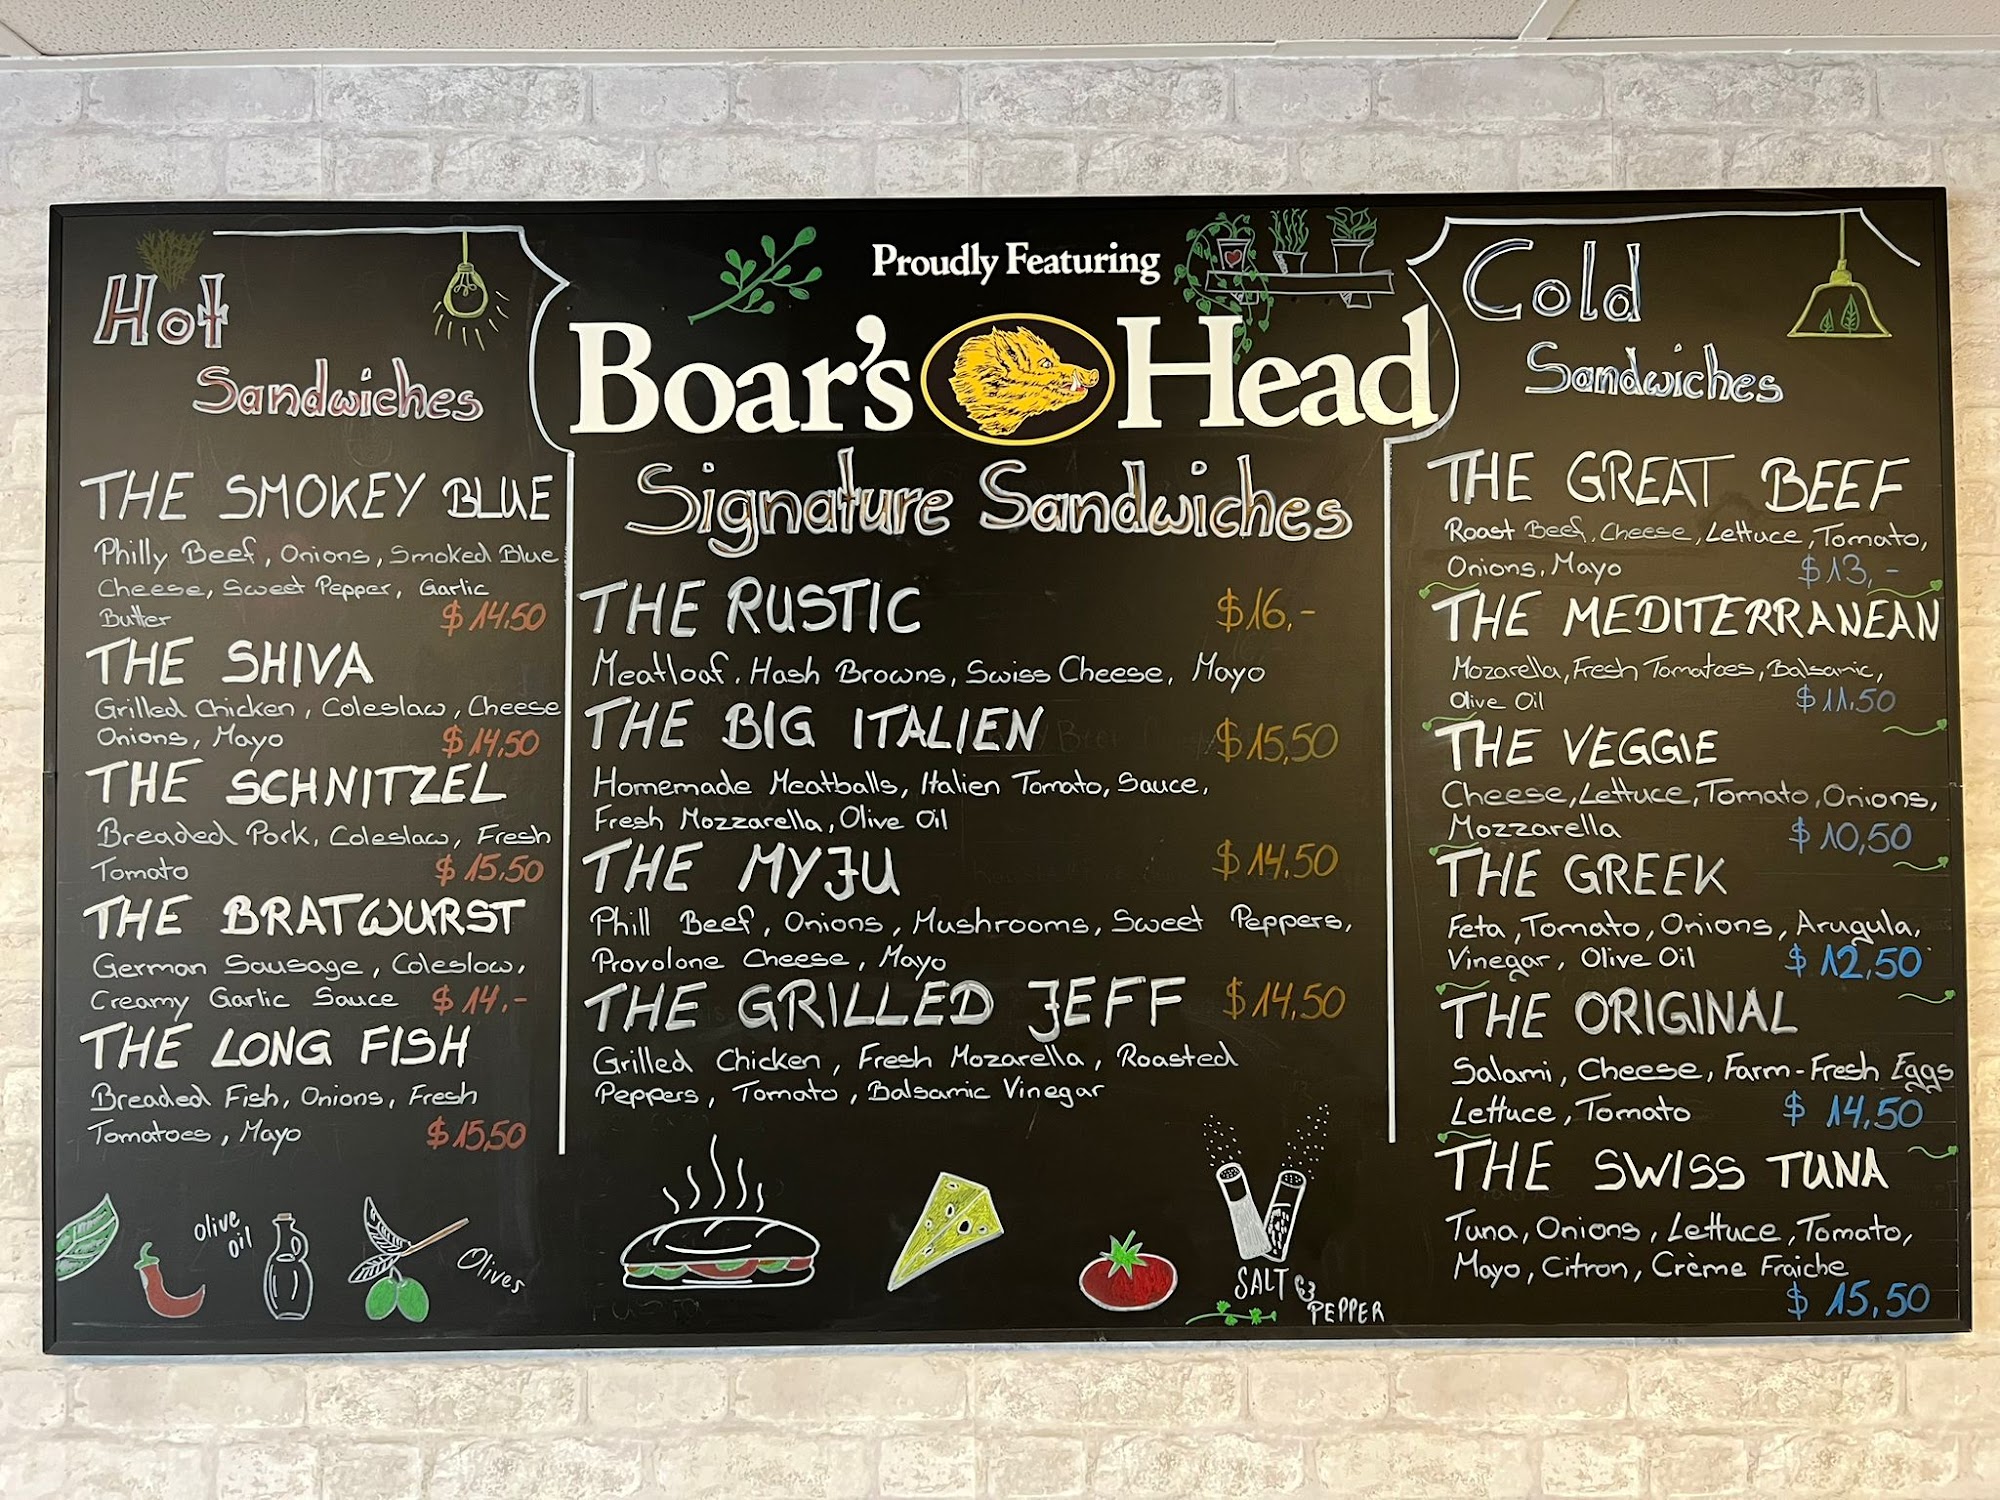 Hot
Sandwiches
THE SMOKEY BLUE
Philly Beef, Onions, Smoked Blue
Cheese, Sweet Pepper, Garlic
Butter $14.50
THE SHIVA
Grilled Chicken, Coleslaw, Cheese
Onions, Mayo $14,50
THE SCHNITZEL
Breaded Pork, Coleslaw, Fresh
Tomato $15.50
THE BRATWURST
German Sausage, Coleslow,
Creamy Garlic Sauce $14.-
THE LONG FISH
Breaded Fish, Onions, Fresh
Tomatoes, Mayo $15,50
olive
oil
Olives
Proudly Featuring
Boar's Head
Signature Sandwiches
THE RUSTIC $16.-
Meatloaf, Hash Browns, Swiss Cheese, Mayo
THE BIG ITALIEN $15,50
Homemade Meatballs, Italien Tomato, Sauce,
Fresh Mozzarella, Olive Oil
THE MYJU $14.50
Phill Beef, Onions, Mushrooms, Sweet Peppers,
Provolone Cheese, Mayo
THE GRILLED JEFF $14,50
Grilled Chicken, Fresh Mozarella, Roasted
Peppers, Tomato, Balsamic Vinegar
SALT &
PEPPER
Cold
Sandwiches
THE GREAT BEEF
Roast Beef, Cheese, Lettuce, Tomato,
Onions, Mayo $13,-
THE MEDITERRANEAN
Mozarella, Fresh Tomatoes, Balsamic,
Olive Oil $11,50
THE VEGGIE
Cheese, Lettuce, Tomato, Onions,
Mozzarella $10,50
THE GREEK
Feta, Tomato, Onions, Arugula,
Vinegar, Olive Oil $12,50
THE ORIGINAL
Salami, Cheese, Farm-Fresh Eggs
Lettuce, Tomato $14,50
THE SWISS TUNA
Tuna, Onions, Lettuce, Tomato,
Mayo, Citron, Crème Fraiche
$15,50